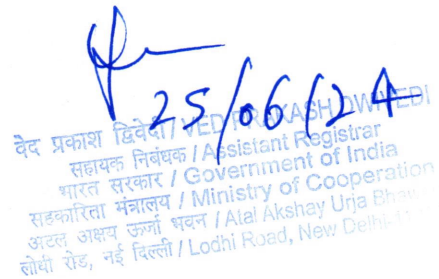 25/06/24
वेद प्रकाश द्विवेदी / VED PRAKASH DWIVEDI
सहायक निबंधक / Assistant Registrar
भारत सरकार / Government of India
सहकारिता मंत्रालय / Ministry of Cooperation
अटल अक्षय ऊर्जा भवन / Atal Akshay Urja
लोधी रोड, नई दिल्ली / Lodhi Road, New Delhi